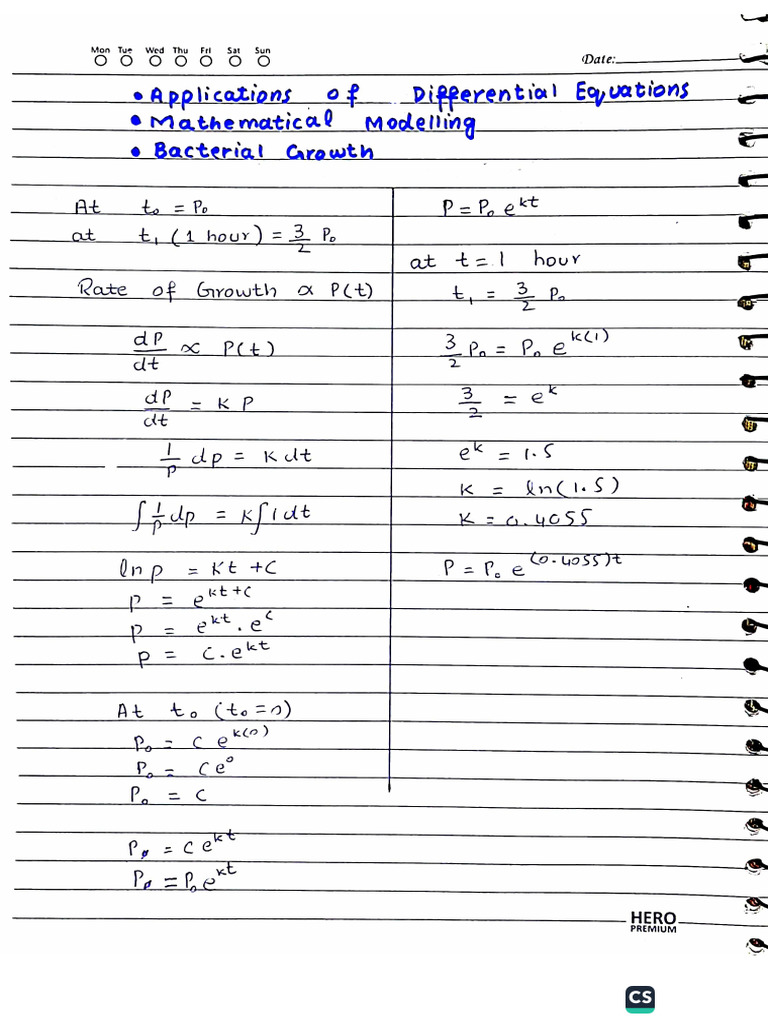 Mon Tue Wed Thu Fri Sat Sun
Date:
• Applications of Differential Equations
• Mathematical Modelling
• Bacterial Growth
At t₀ = P₀
at t₁ (1 hour) = 3/2 P₀
Rate of Growth ∝ P(t)
dP/dt ∝ P(t)
dP/dt = K P
1/P dp = K dt
∫ 1/P dp = K∫1dt
ln p = Kt + C
p = e^(kt+c)
p = e^(kt) . e^c
p = C. e^(kt)
At t₀ (t₀=0)
P₀ = C e^(k(0))
P₀ = C e⁰
P₀ = C
P = C e^(kt)
P = P₀ e^(kt)
P = P₀ e^(kt)
at t = 1 hour
t₁ = 3/2 P₀
3/2 P₀ = P₀ e^(k(1))
3/2 = e^k
e^k = 1.5
K = ln(1.5)
K = 0.4055
P = P₀ e^((0.4055)t)
HERO
PREMIUM
CS